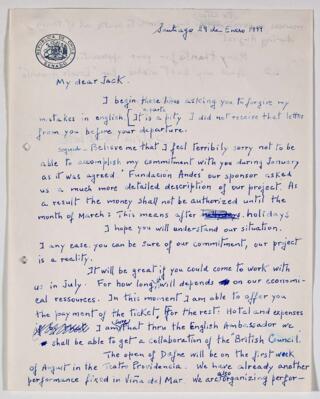 REPUBLICA DE CHILE
Santiago 29 de Enero 1999
My dear Jack.
I begin these lines asking you to forgive my
mistakes in english. It is a pity I did not receive that letter
from you before your departure.
Believe me that I feel terribily sorry not to be
able to accomplish my commitment with you during January
as it was agreed "Fundacion Andes" our sponsor asked
us a much more detailed description of our project. As
a result the money shall not be authorized until the
month of March: This means after holidays
I hope you will understand our situation.
I any case you can be sure of our commitment, our project
is a reality.
It will be great if you could come to work with
us in July. For how long will depends on our economi-
cal ressources. In this moment I am able to offer you
the payment of the ticket, for the rest: Hotel and expenses
I am sure that thru the English Ambassador we
shall be able to get a collaboration of the "British Council."
The open of Dafne will be on the first week
of August in the Teatro Providencia. We have already another
performance fixed in Viña del Mar. We are also organizing perfor-